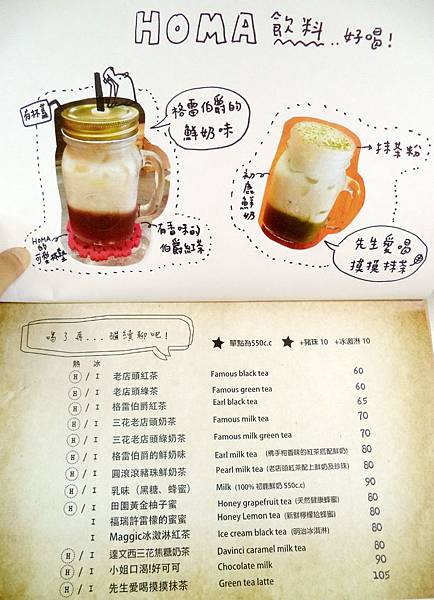 HOMA 飲料..好喝!
有杯蓋
格雷伯爵的
鮮奶味
抹茶粉
初鹿鮮奶
HOMA的
可愛杯墊
有香味的
伯爵紅茶
先生愛喝
摸摸抹茶
喝了再...繼續聊吧!
★ 單點為550c.c ★ +豬珠 10 +冰激淋 10
熱 冰
H / I 老店頭紅茶 Famous black tea 60
H / I 老店頭綠茶 Famous green tea 60
H / I 格雷伯爵紅茶 Earl black tea 65
H / I 三花老店頭奶茶 Famous milk tea 70
H / I 三花老店頭綠奶茶 Famous milk green tea 70
H / I 格雷伯爵的鮮奶味 Earl milk tea (佛手柑香味的紅茶搭配鮮奶) 80
H / I 圓滾滾豬珠鮮奶茶 Pearl milk tea (老店頭紅茶配上鮮奶及珍珠) 80
H / I 乳味 (黑糖、蜂蜜) Milk (100% 初鹿鮮奶 550c.c) 90
H / I 田園黃金柚子蜜 Honey grapefruit tea (天然健康蜂蜜) 80
I 福瑞許雷檬的蜜蜜 Honey Lemon tea (新鮮檸檬蛤蜂蜜) 80
I Maggic冰激淋紅茶 Ice cream black tea (明治冰淇淋) 80
H / I 達文西三花焦糖奶茶 Davinci caramel milk tea 80
H / I 小姐口渴!好可可 Chocolate milk 90
H / I 先生愛喝摸摸抹茶 Green tea latte 105